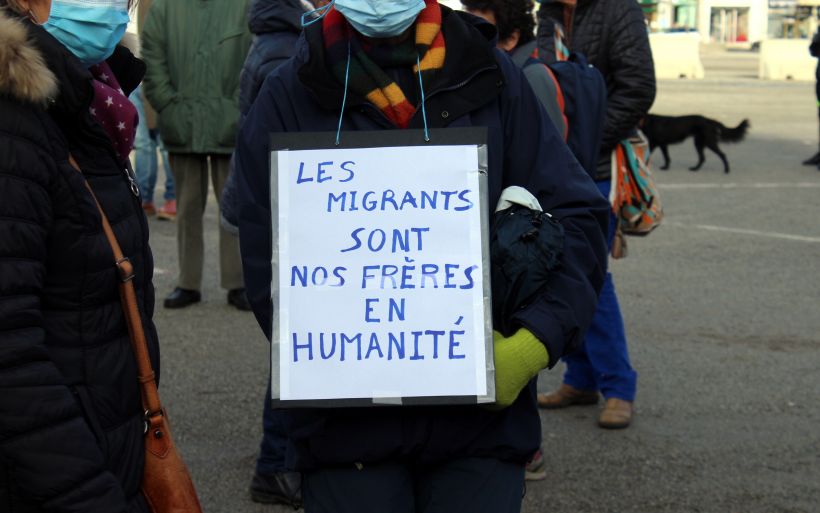 LES
MIGRANTS
SONT
NOS FRÈRES
EN
HUMANITÉ